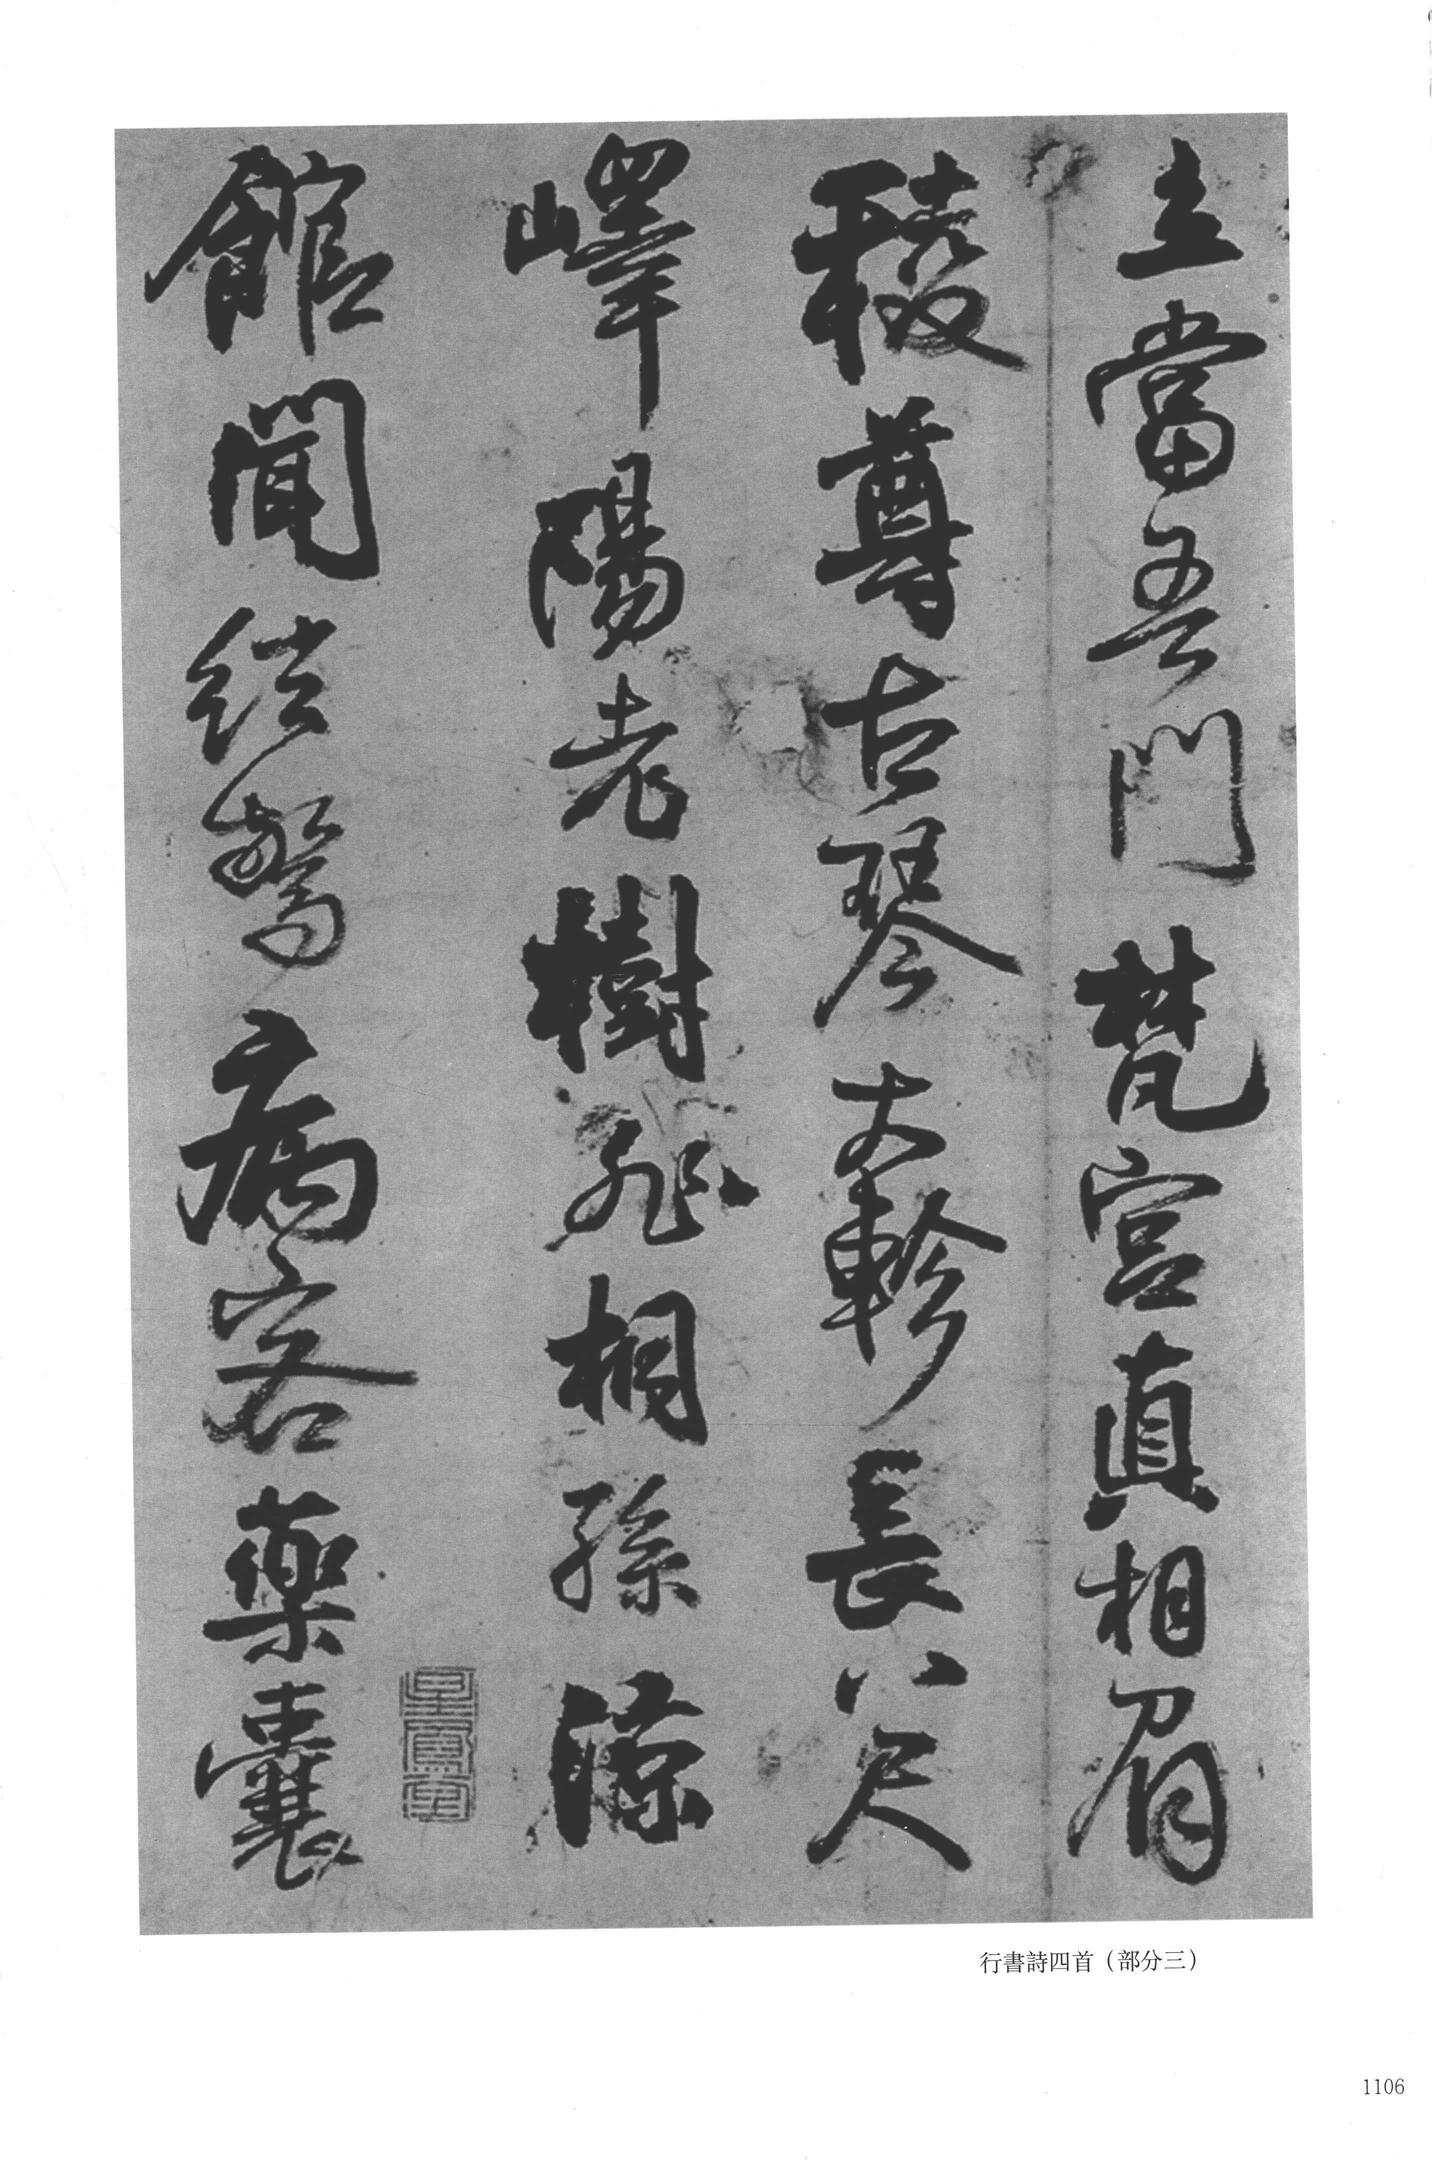 立當吾門梵宮真相眉
稜尊古琴大軫長八尺
嶧陽老樹非桐孫涼
館聞絃驚病客藥囊
行書詩四首（部分三）
1106